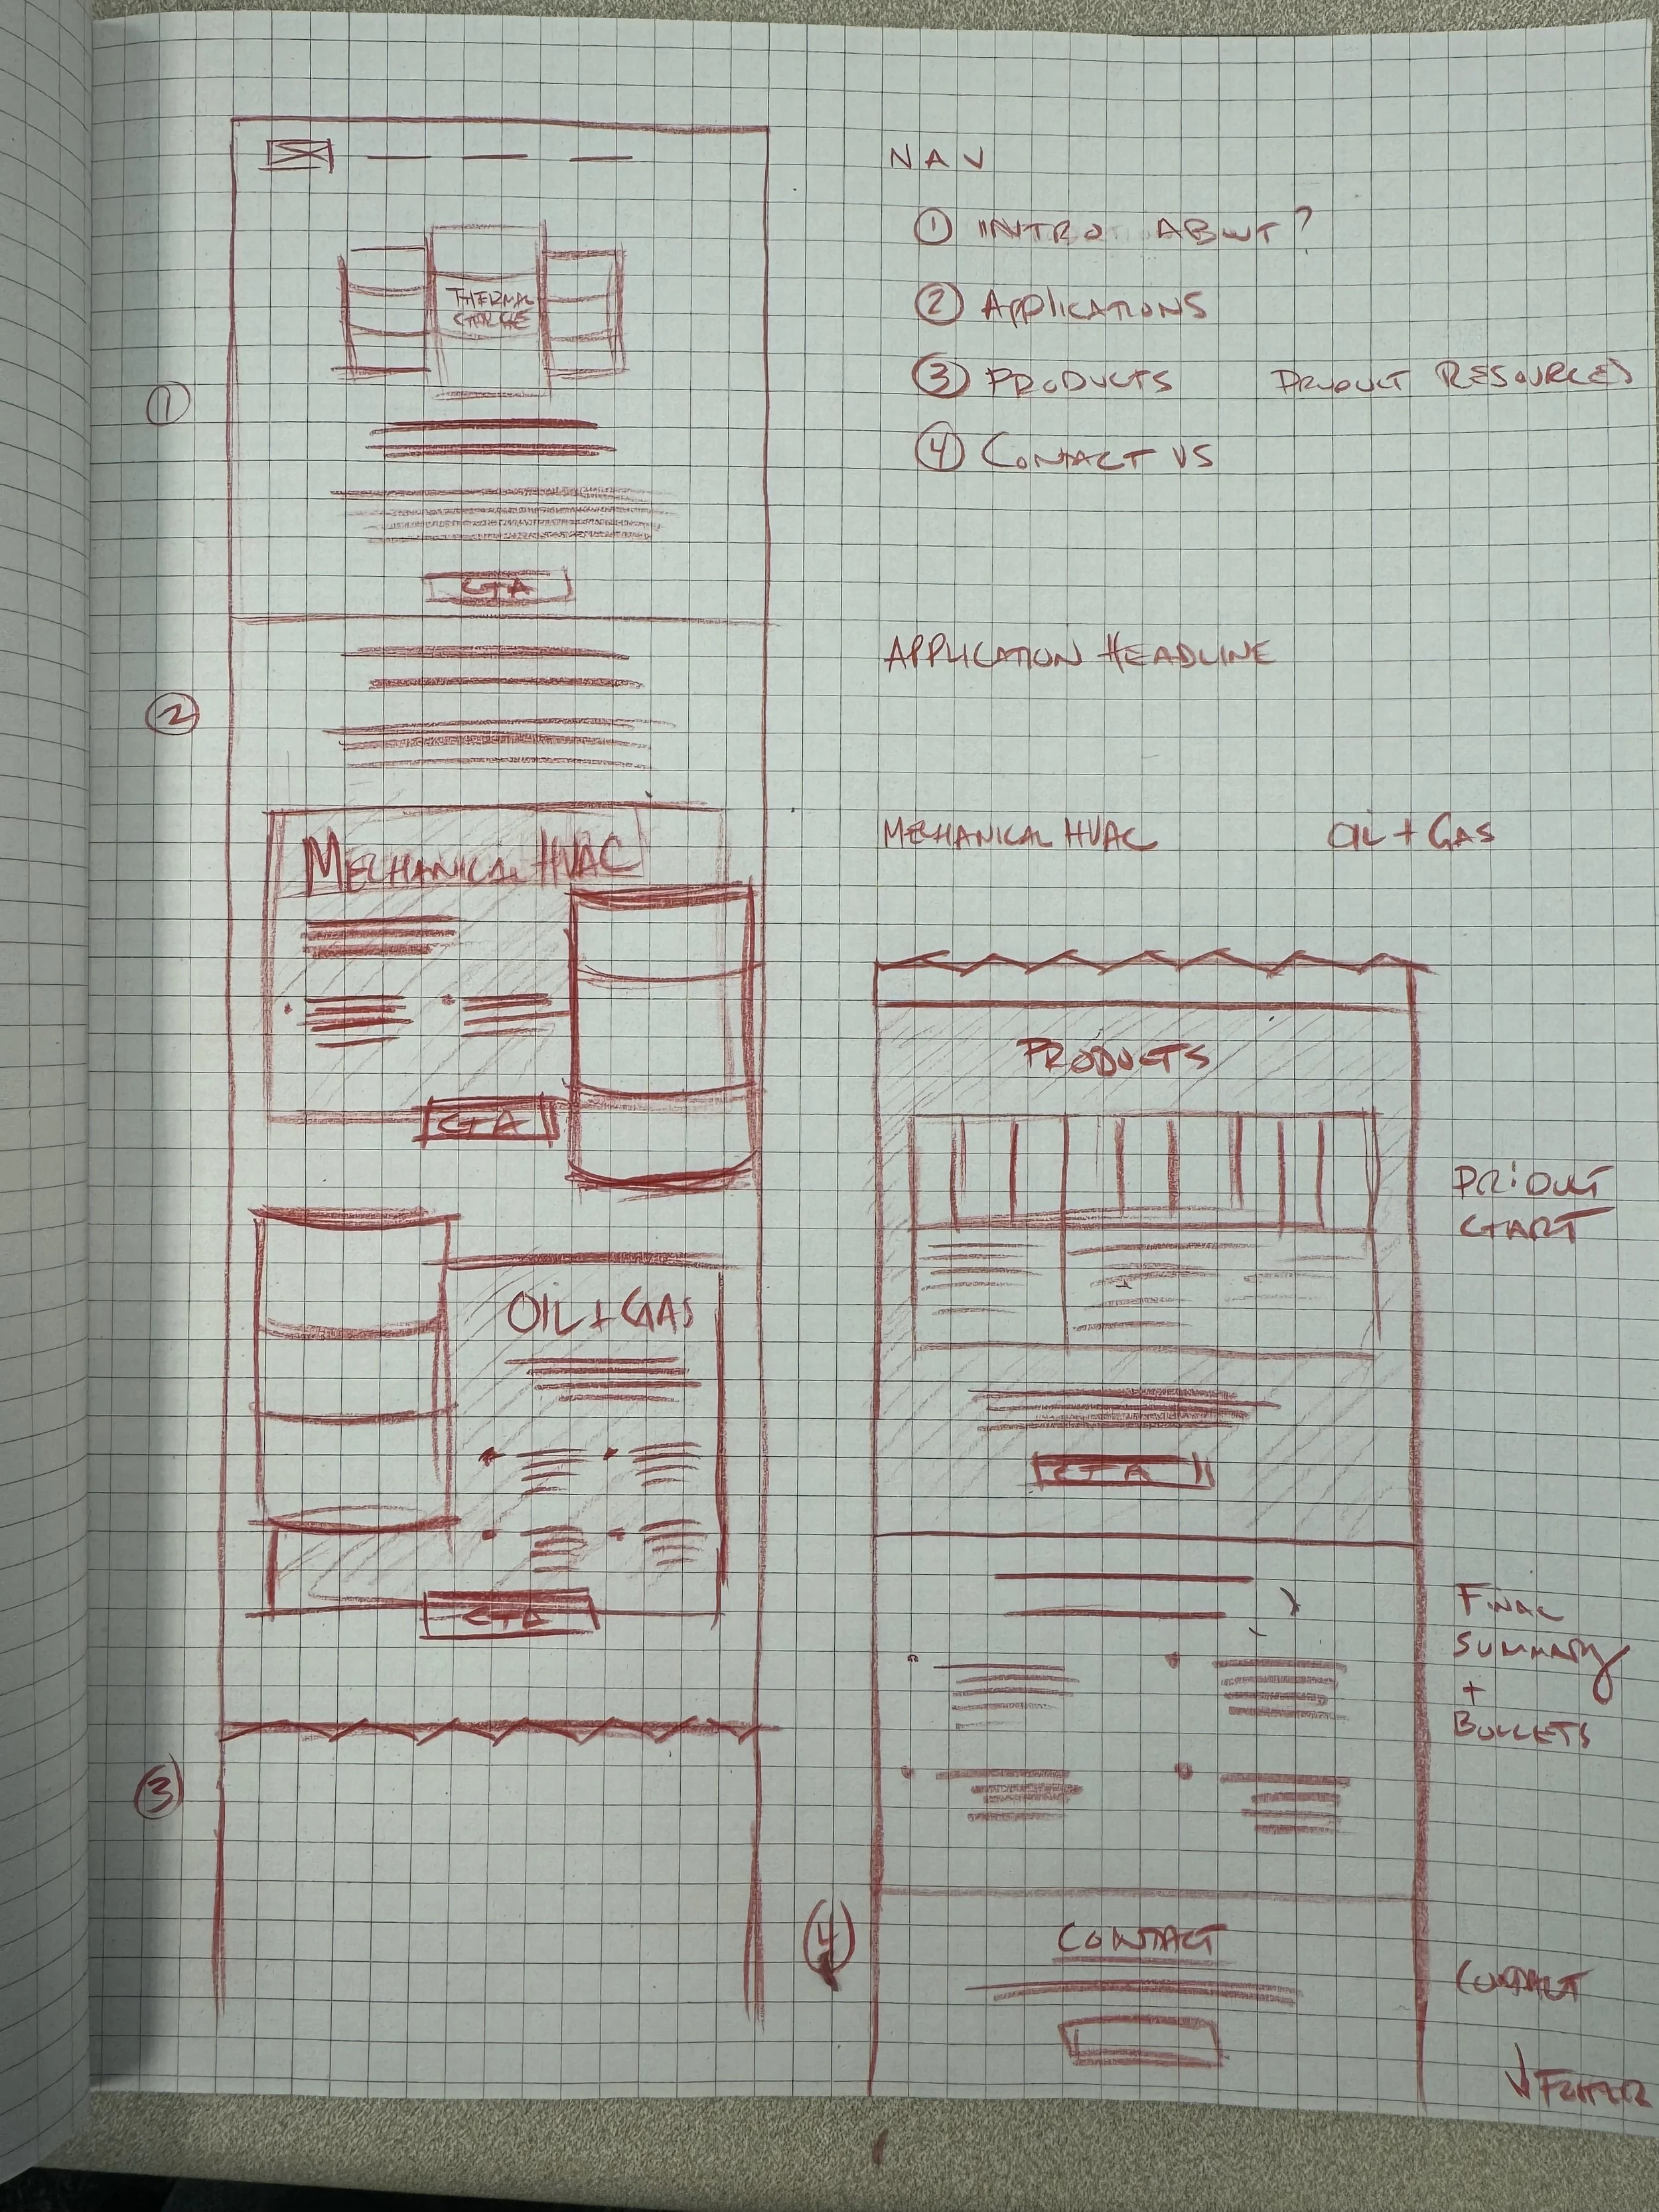 NAV
① INTRO ABOUT?
② APPLICATIONS
③ PRODUCTS PRODUCT RESOURCES
④ CONTACT US
THERMAL
CHARGE
①
CTA
②
APPLICATION HEADLINE
MECHANICAL HVAC OIL + GAS
MECHANICAL HVAC
CTA
OIL + GAS
CTA
③
PRODUCTS
PRODUCT
CHART
CTA
FINAL
SUMMARY
+
BULLETS
④
CONTACT
CONTACT
↓ FOOTER